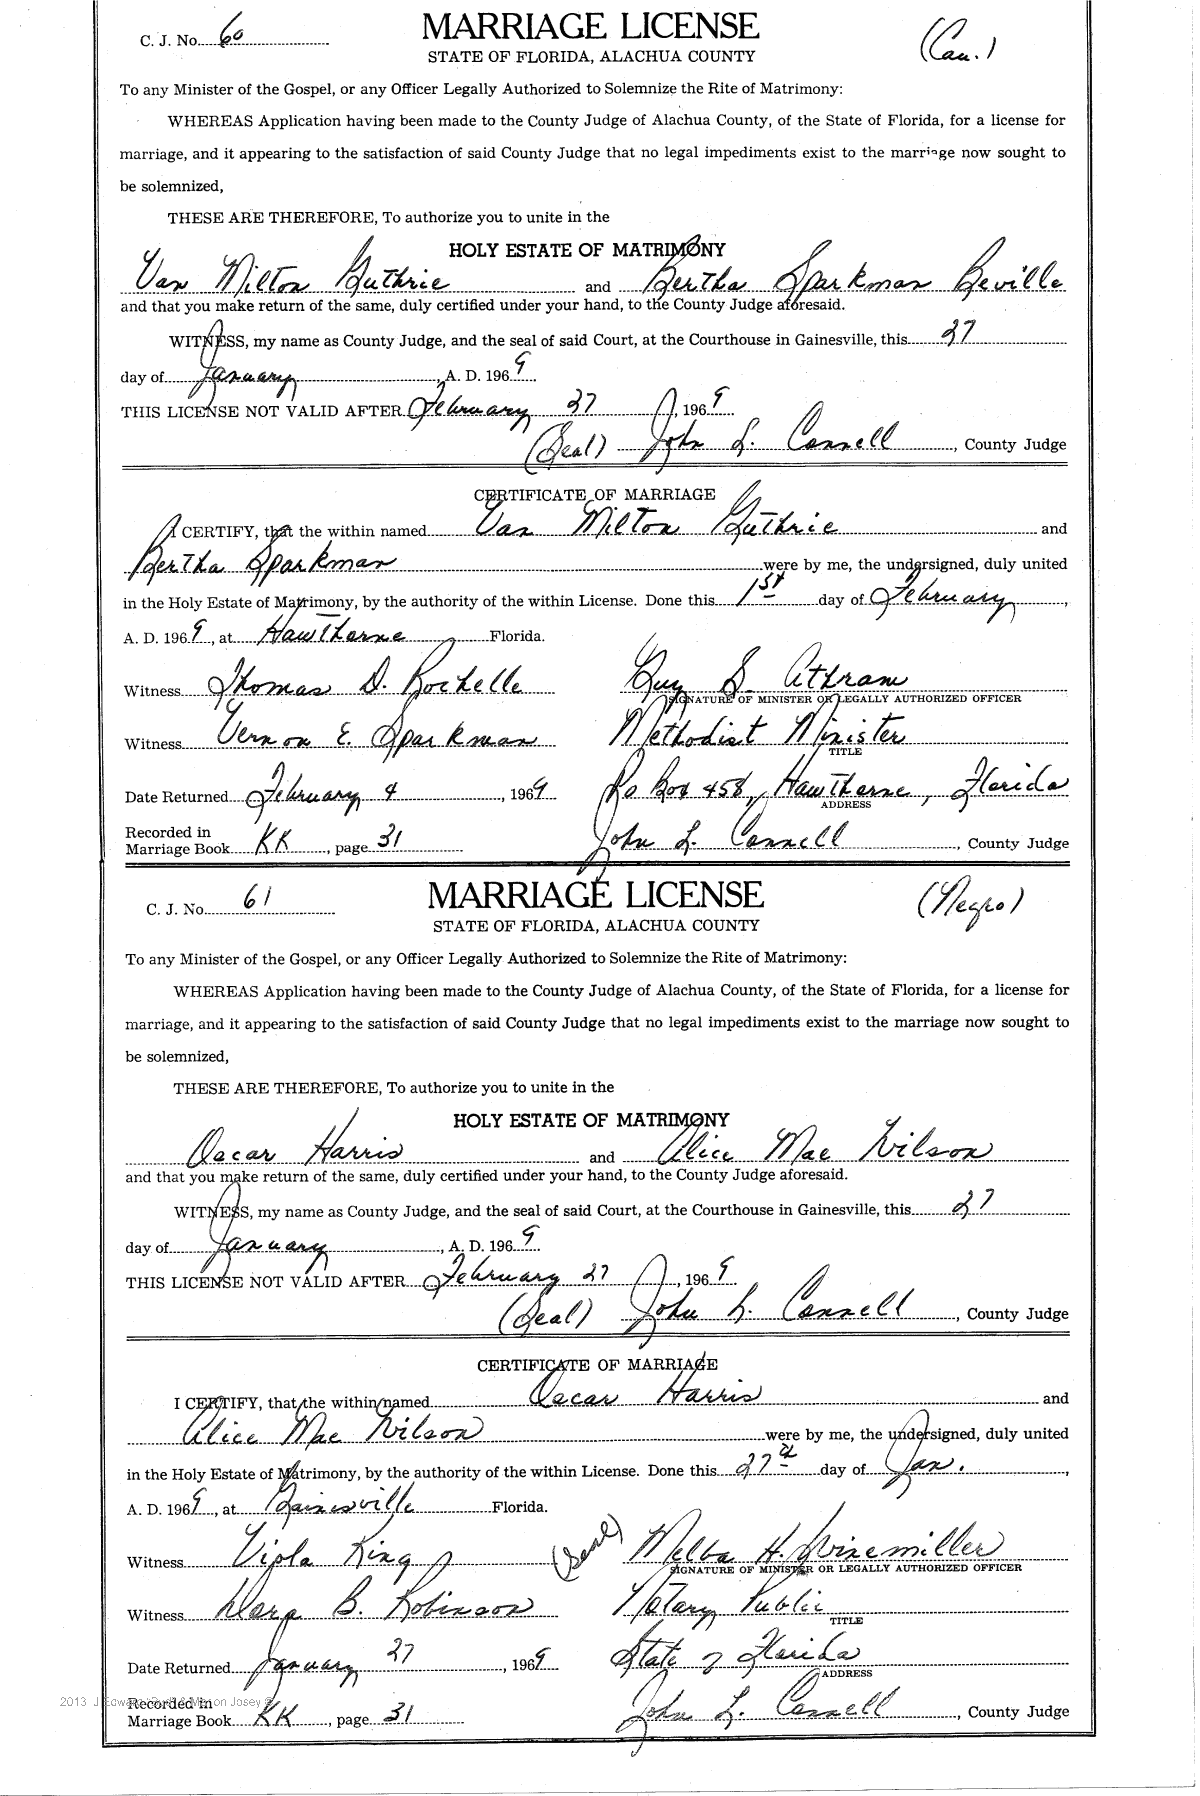 C. J. No. 60
MARRIAGE LICENSE
(Cau.)
STATE OF FLORIDA, ALACHUA COUNTY
To any Minister of the Gospel, or any Officer Legally Authorized to Solemnize the Rite of Matrimony:
WHEREAS Application having been made to the County Judge of Alachua County, of the State of Florida, for a license for
marriage, and it appearing to the satisfaction of said County Judge that no legal impediments exist to the marriage now sought to
be solemnized,
THESE ARE THEREFORE, To authorize you to unite in the
HOLY ESTATE OF MATRIMONY
Van Milton Guthrie and Bertha Sparkman Beville
and that you make return of the same, duly certified under your hand, to the County Judge aforesaid.
WITNESS, my name as County Judge, and the seal of said Court, at the Courthouse in Gainesville, this 27
day of January, A. D. 1969
THIS LICENSE NOT VALID AFTER February 27, 1969
(Seal) John L. Connell, County Judge
CERTIFICATE OF MARRIAGE
I CERTIFY, that the within named Van Milton Guthrie and
Bertha Sparkman were by me, the undersigned, duly united
in the Holy Estate of Matrimony, by the authority of the within License. Done this 1st day of February,
A. D. 1969, at Hawthorne Florida.
Witness Thomas D. Rochelle Guy S. Athram
SIGNATURE OF MINISTER OR LEGALLY AUTHORIZED OFFICER
Witness Vernon E. Sparkman Methodist Minister
TITLE
Date Returned February 4, 1969 Po Box 458, Hawthorne, Florida
ADDRESS
Recorded in
Marriage Book KK, page 31 John L. Connell, County Judge
C. J. No. 61
MARRIAGE LICENSE
(Negro)
STATE OF FLORIDA, ALACHUA COUNTY
To any Minister of the Gospel, or any Officer Legally Authorized to Solemnize the Rite of Matrimony:
WHEREAS Application having been made to the County Judge of Alachua County, of the State of Florida, for a license for
marriage, and it appearing to the satisfaction of said County Judge that no legal impediments exist to the marriage now sought to
be solemnized,
THESE ARE THEREFORE, To authorize you to unite in the
HOLY ESTATE OF MATRIMONY
Oscar Harris and Alice Mae Wilson
and that you make return of the same, duly certified under your hand, to the County Judge aforesaid.
WITNESS, my name as County Judge, and the seal of said Court, at the Courthouse in Gainesville, this 27
day of January, A. D. 1969
THIS LICENSE NOT VALID AFTER February 27, 1969
(Seal) John L. Connell, County Judge
CERTIFICATE OF MARRIAGE
I CERTIFY, that the within named Oscar Harris and
Alice Mae Wilson were by me, the undersigned, duly united
in the Holy Estate of Matrimony, by the authority of the within License. Done this 27th day of Jan.,
A. D. 1969, at Gainesville Florida.
Witness Viola King (Seal) Melba H. Winemiller
SIGNATURE OF MINISTER OR LEGALLY AUTHORIZED OFFICER
Witness B. Robinson Notary Public
TITLE
Date Returned January 27, 1969 State of Florida
ADDRESS
Recorded in
Marriage Book KK, page 31 John L. Connell, County Judge
2013 Josey ©